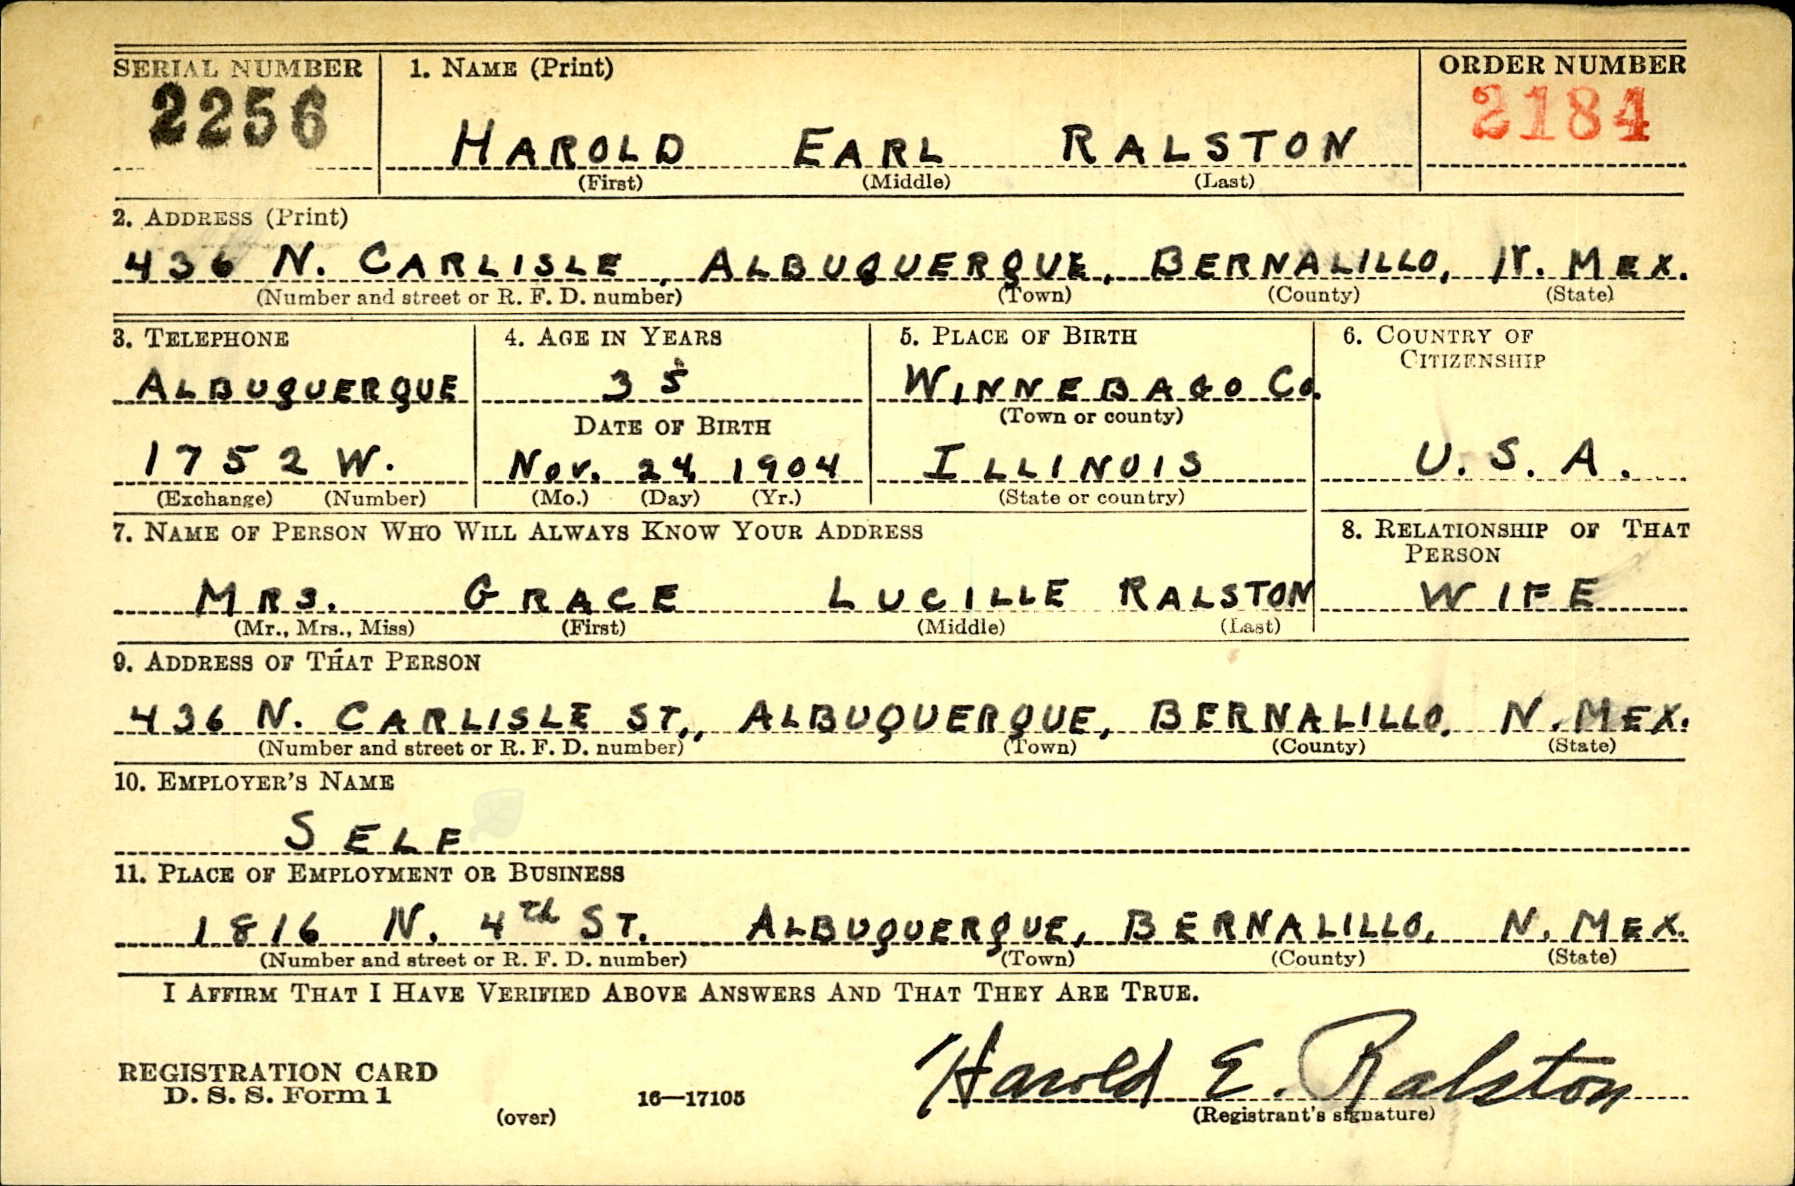 SERIAL NUMBER 1. NAME (Print) ORDER NUMBER
2256 HAROLD EARL RALSTON 2184
(First) (Middle) (Last)
2. ADDRESS (Print)
436 N. CARLISLE, ALBUQUERQUE, BERNALILLO, N. MEX.
(Number and street or R. F. D. number) (Town) (County) (State)
3. TELEPHONE 4. AGE IN YEARS 5. PLACE OF BIRTH 6. COUNTRY OF CITIZENSHIP
ALBUQUERQUE 35 WINNEBAGO CO.
DATE OF BIRTH (Town or county)
1752 W. NOV. 24, 1904 ILLINOIS U. S. A.
(Exchange) (Number) (Mo.) (Day) (Yr.) (State or country)
7. NAME OF PERSON WHO WILL ALWAYS KNOW YOUR ADDRESS 8. RELATIONSHIP OF THAT PERSON
MRS. GRACE LUCILLE RALSTON WIFE
(Mr., Mrs., Miss) (First) (Middle) (Last)
9. ADDRESS OF THAT PERSON
436 N. CARLISLE ST., ALBUQUERQUE, BERNALILLO, N. MEX.
(Number and street or R. F. D. number) (Town) (County) (State)
10. EMPLOYER'S NAME
SELF
11. PLACE OF EMPLOYMENT OR BUSINESS
1816 N. 4th ST. ALBUQUERQUE, BERNALILLO, N. MEX.
(Number and street or R. F. D. number) (Town) (County) (State)
I AFFIRM THAT I HAVE VERIFIED ABOVE ANSWERS AND THAT THEY ARE TRUE.
REGISTRATION CARD Harold E. Ralston
D. S. S. Form 1 (over) 16—17105 (Registrant's signature)